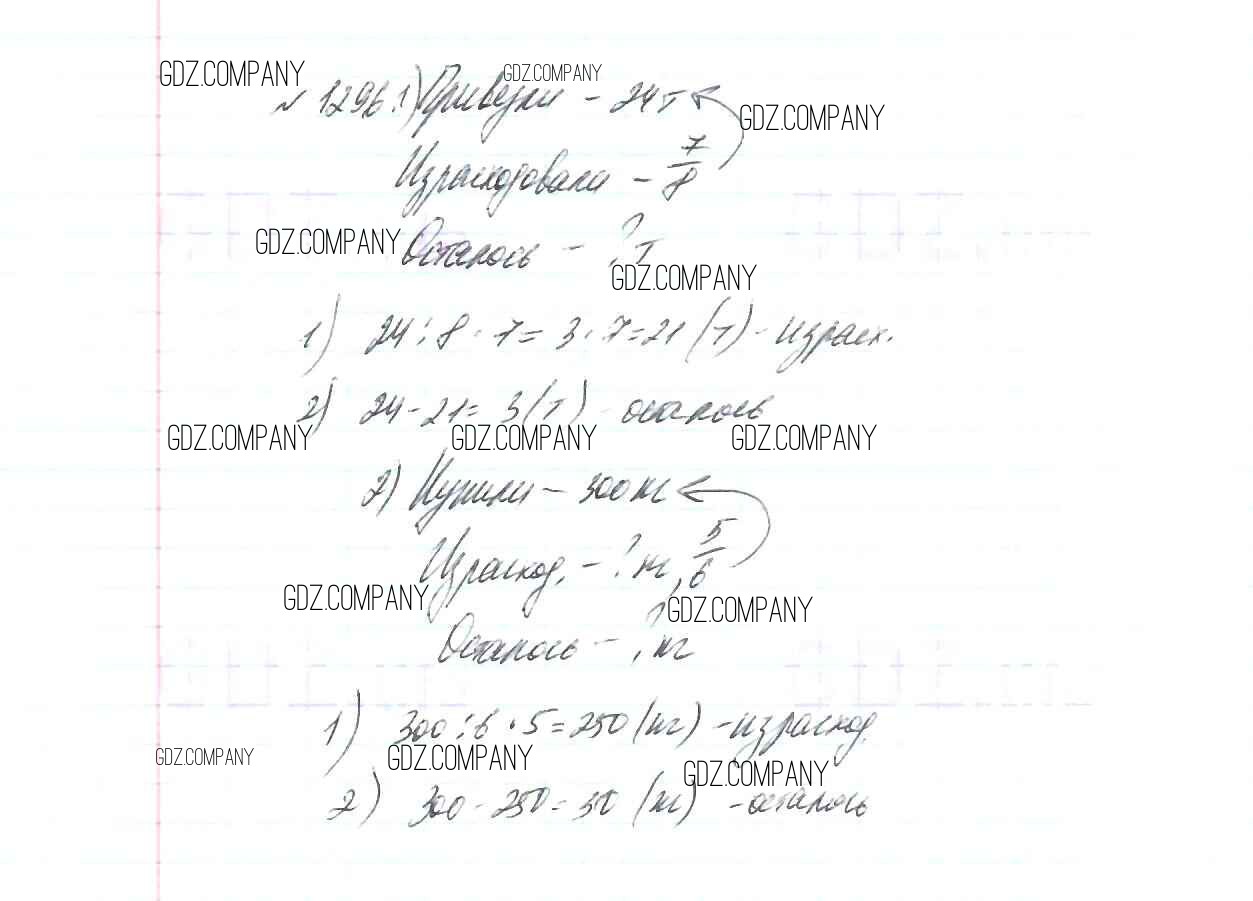 GDZ.COMPANY GDZ.COMPANY
№ 1296.1) Привезли - 24 т GDZ.COMPANY
Израсходовали - 7/8
GDZ.COMPANY Осталось - ? т
GDZ.COMPANY
1) 24 : 8 · 7 = 3 · 7 = 21 (т) - израсх.
2) 24 - 21 = 3 (т) - осталось
GDZ.COMPANY GDZ.COMPANY GDZ.COMPANY
2) Купили - 300 кг
Израсход. - ? кг, 5/6
GDZ.COMPANY GDZ.COMPANY
Осталось - ? кг
1) 300 : 6 · 5 = 250 (кг) - израсход.
GDZ.COMPANY GDZ.COMPANY GDZ.COMPANY
2) 300 - 250 = 50 (кг) - осталось